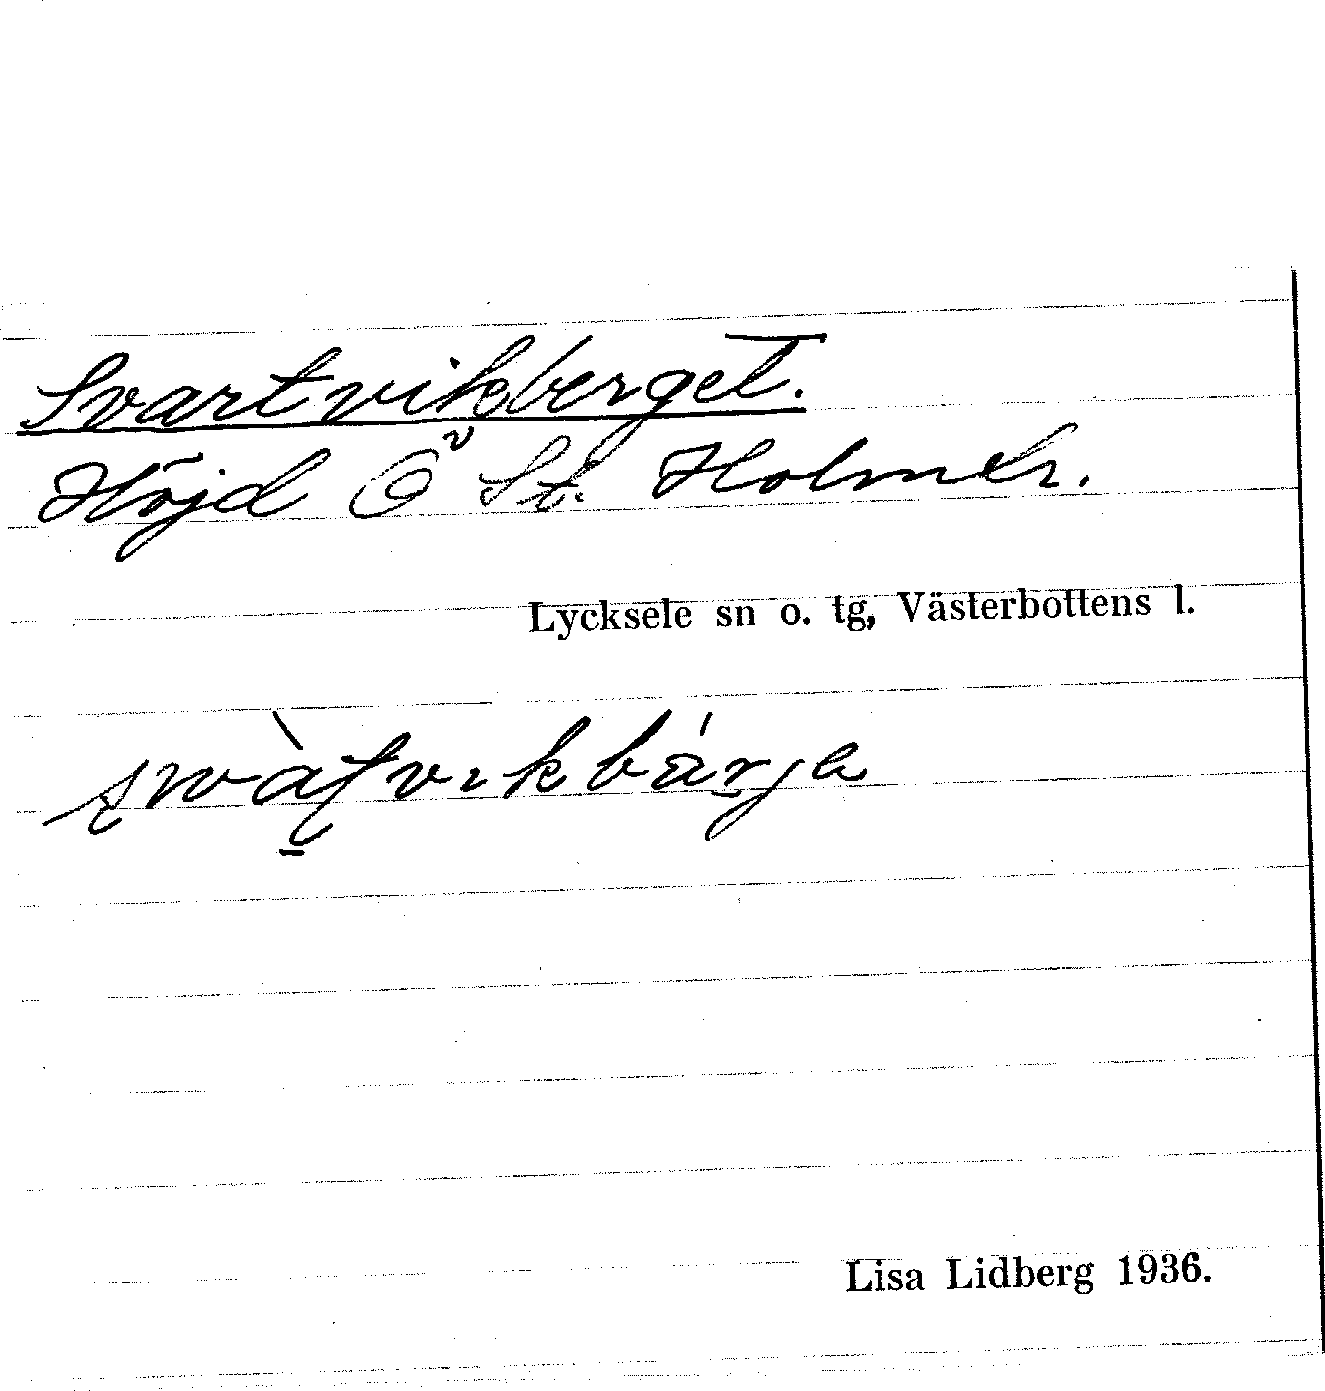 Svartvikberget.
Höjd Ö St. Holmen.
Lycksele sn o. tg, Västerbottens l.
Lisa Lidberg 1936.